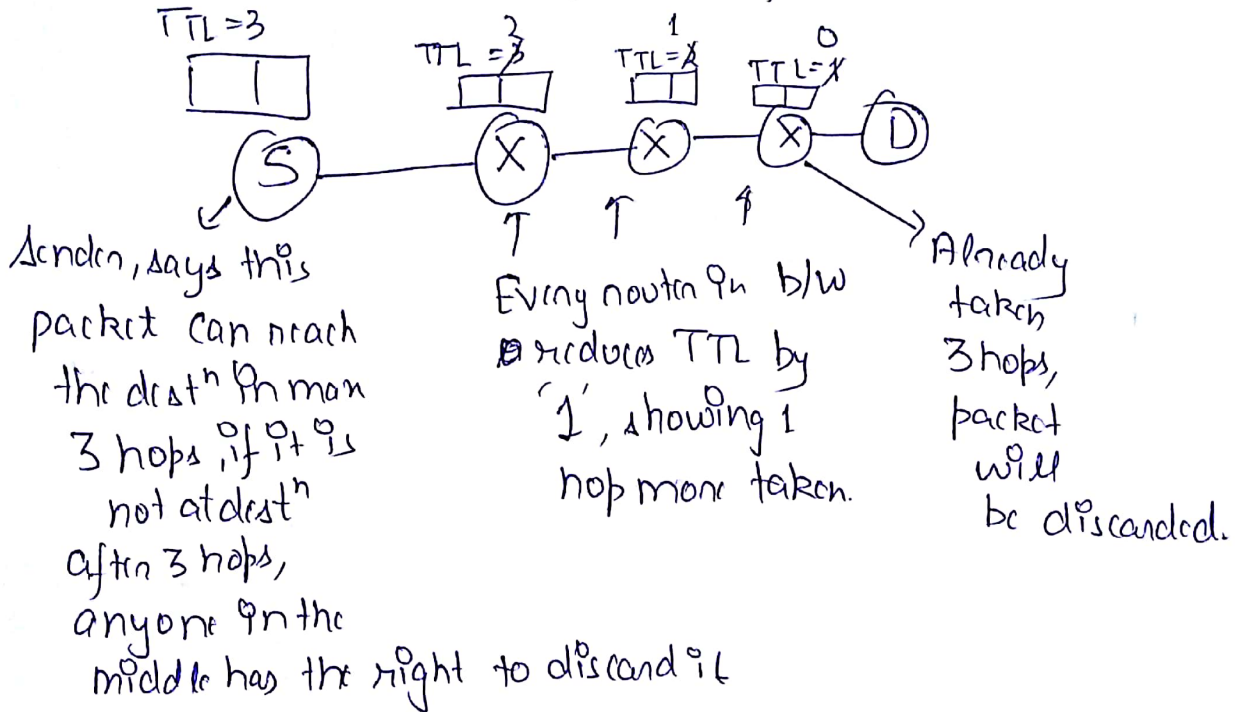 TTL=3
2
TTL=3
1
TTL=2
0
TTL=1
S
X
X
X
D
Sender, says this
packet can reach
the destn in max
3 hops, if it is
not at destn
after 3 hops,
anyone in the
middle has the right to discard it
Every router in b/w
reduces TTL by
'1', showing 1
hop more taken.
Already
taken
3 hops,
packet
will
be discarded.